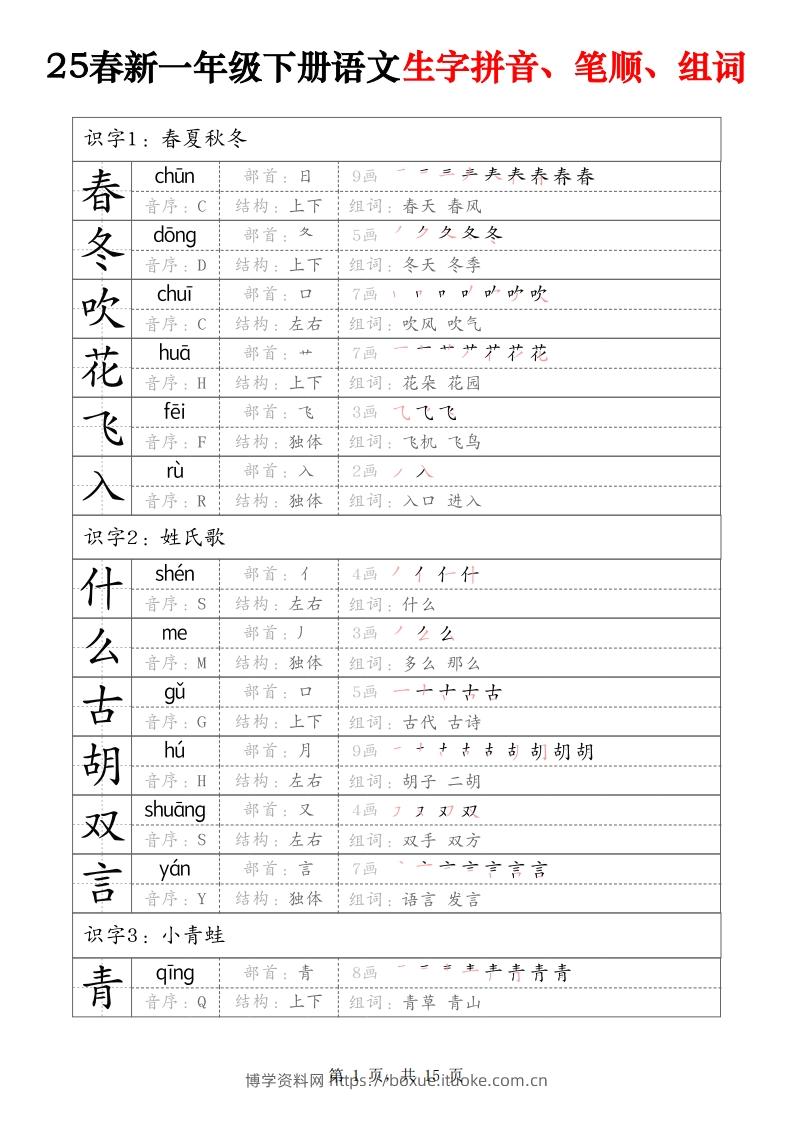 25春新一年级下册语文生字拼音、笔顺、组词
识字1：春夏秋冬
春 chūn 部首：日 9画
音序：C 结构：上下 组词：春天 春风
冬 dōng 部首：夂 5画
音序：D 结构：上下 组词：冬天 冬季
吹 chuī 部首：口 7画
音序：C 结构：左右 组词：吹风 吹气
花 huā 部首：艹 7画
音序：H 结构：上下 组词：花朵 花园
飞 fēi 部首：飞 3画
音序：F 结构：独体 组词：飞机 飞鸟
入 rù 部首：入 2画
音序：R 结构：独体 组词：入口 进入
识字2：姓氏歌
什 shén 部首：亻 4画
音序：S 结构：左右 组词：什么
么 me 部首：丿 3画
音序：M 结构：独体 组词：多么 那么
古 gǔ 部首：口 5画
音序：G 结构：上下 组词：古代 古诗
胡 hú 部首：月 9画
音序：H 结构：左右 组词：胡子 二胡
双 shuāng 部首：又 4画
音序：S 结构：左右 组词：双手 双方
言 yán 部首：言 7画
音序：Y 结构：独体 组词：语言 发言
识字3：小青蛙
青 qīng 部首：青 8画
音序：Q 结构：上下 组词：青草 青山
第 1 页，共 15 页
博学资料网 https://boxue.ituoke.com.cn